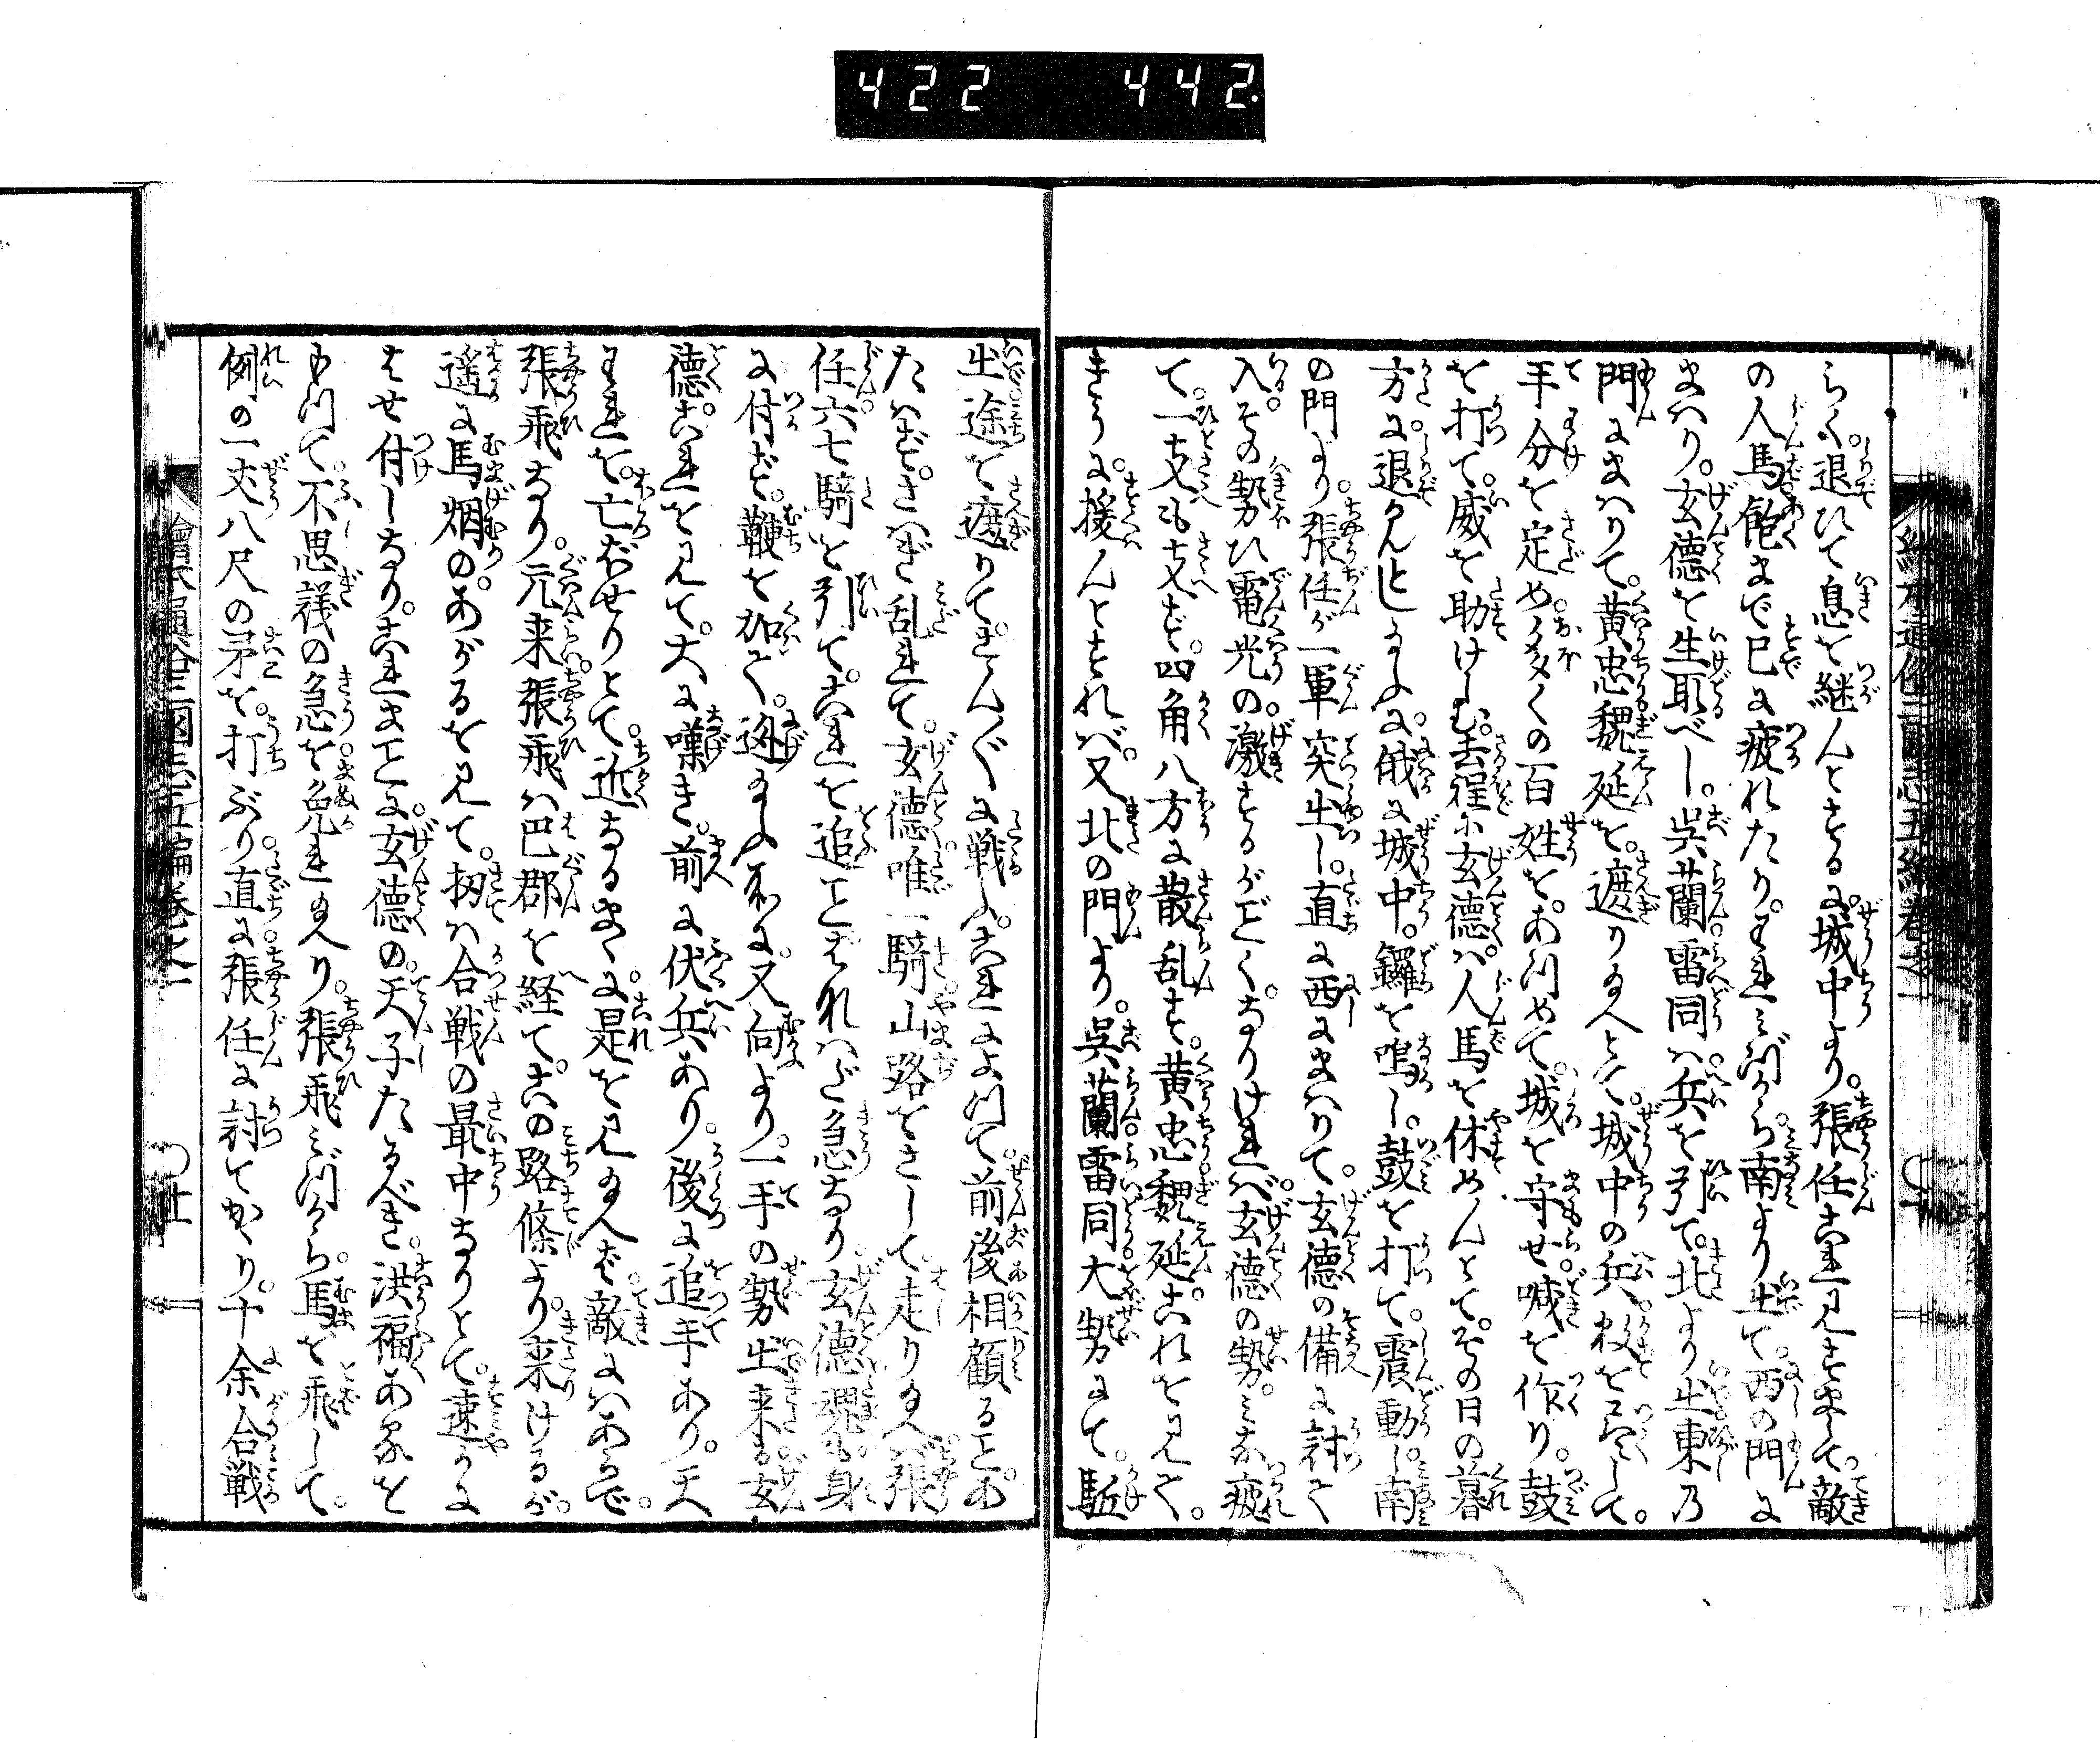 422 442
らく。退ひて息を継んとするに。城中より。張任これを見すまして。敵
の人馬飽まで已に疲れたり。われみづから南より出て。西の門に
まはり。玄徳を生取べし。呉蘭雷同は兵を引て。北より出東乃
門にまはりて。黄忠魏延を。遮り給へとて。城中の兵。数を尽して。
手分を定め。多くの百姓を。あつめて。城を守せ喊を作り。鼓
を打て。威を助けしむ。去程に玄徳は人馬を休めんとて。その日の暮
方に。退かんとし給ふに。俄に城中。鑼を鳴し。鼓を打て。震動し。南
の門より。張任が一軍突出し。直に西にまはりて。玄徳の備に討て
入。その勢ひ電光の。激するがごとくなりければ。玄徳の勢。みな疲
て。一支も支へず。四角八方に散乱す。黄忠魏延。これを見て。
きうに。援んとすれば。又北の門より。呉蘭雷同大勢にて。駈
出途を遮りてさんざんに戦ふ。これによつて。前後相顧ることあ
たはず。さはぎ乱れて。玄徳唯一騎山路をさして走り給へば。張
任六七騎を引て。これを追ことはなはだ急なり。玄徳魂も身
に付ず。鞭を加て。迯給ふ所に。又向より。一手の勢出来る。玄
徳。これを見て。大に嘆き。前に伏兵あり。後に追手あり。天
われを。亡ぼせりとて。近なるまゝに。是を見給へば。敵にはあらで。
張飛なり。元来張飛は巴郡を経て。この路條より。来けるが。
遥に馬烟の。あがるを見て。扨は合戦の最中なりとて。速かに
はせ付しなり。これまことに。玄徳の。天子たるべき。洪福あるを
もつて。不思議の急を免れ給へり。張飛みづから。馬を飛して。
例の一丈八尺の矛を。打ふり。直に張任に討てかゝり。十余合戦
繪本通俗三國志五編巻之一